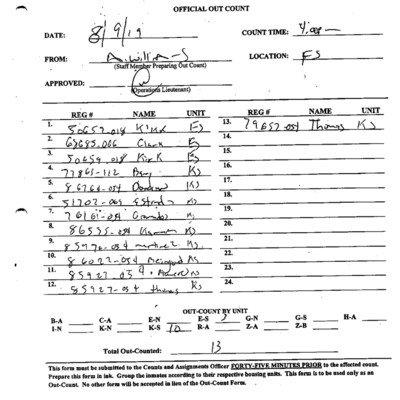 OFFICIAL OUT COUNT
DATE: 8/9/19 COUNT TIME: 4:00
FROM: LOCATION: FS
(Staff Member Preparing Out Count)
APPROVED:
(Operations Lieutenant)
REG # NAME UNIT REG # NAME UNIT
1. 50657-018 Kirk ES 13. 79657-054 Thomas KS
2. Clark ES 14.
3. 50659-018 Kirk ES 15.
4. 77863-112 KS 16.
5. KS 17.
6. 51702-069 Estrada KS 18.
7. KS 19.
8. 86535-054 KS 20.
9. 85976-054 Martinez KS 21.
10. 86022-054 KS 22.
11. 85927-054 KS 23.
12. 85927-054 Thomas KS 24.
OUT-COUNT BY UNIT
B-A C-A E-N E-S 3 G-N G-S H-A
I-N K-N K-S 10 R-A Z-A Z-B
Total Out-Counted: 13
This form must be submitted to the Counts and Assignments Officer FORTY-FIVE MINUTES PRIOR to the affected count.
Prepare this form in ink. Group the inmates according to their respective housing units. This form is to be used only as an
Out-Count. No other form will be accepted in lieu of the Out-Count Form.